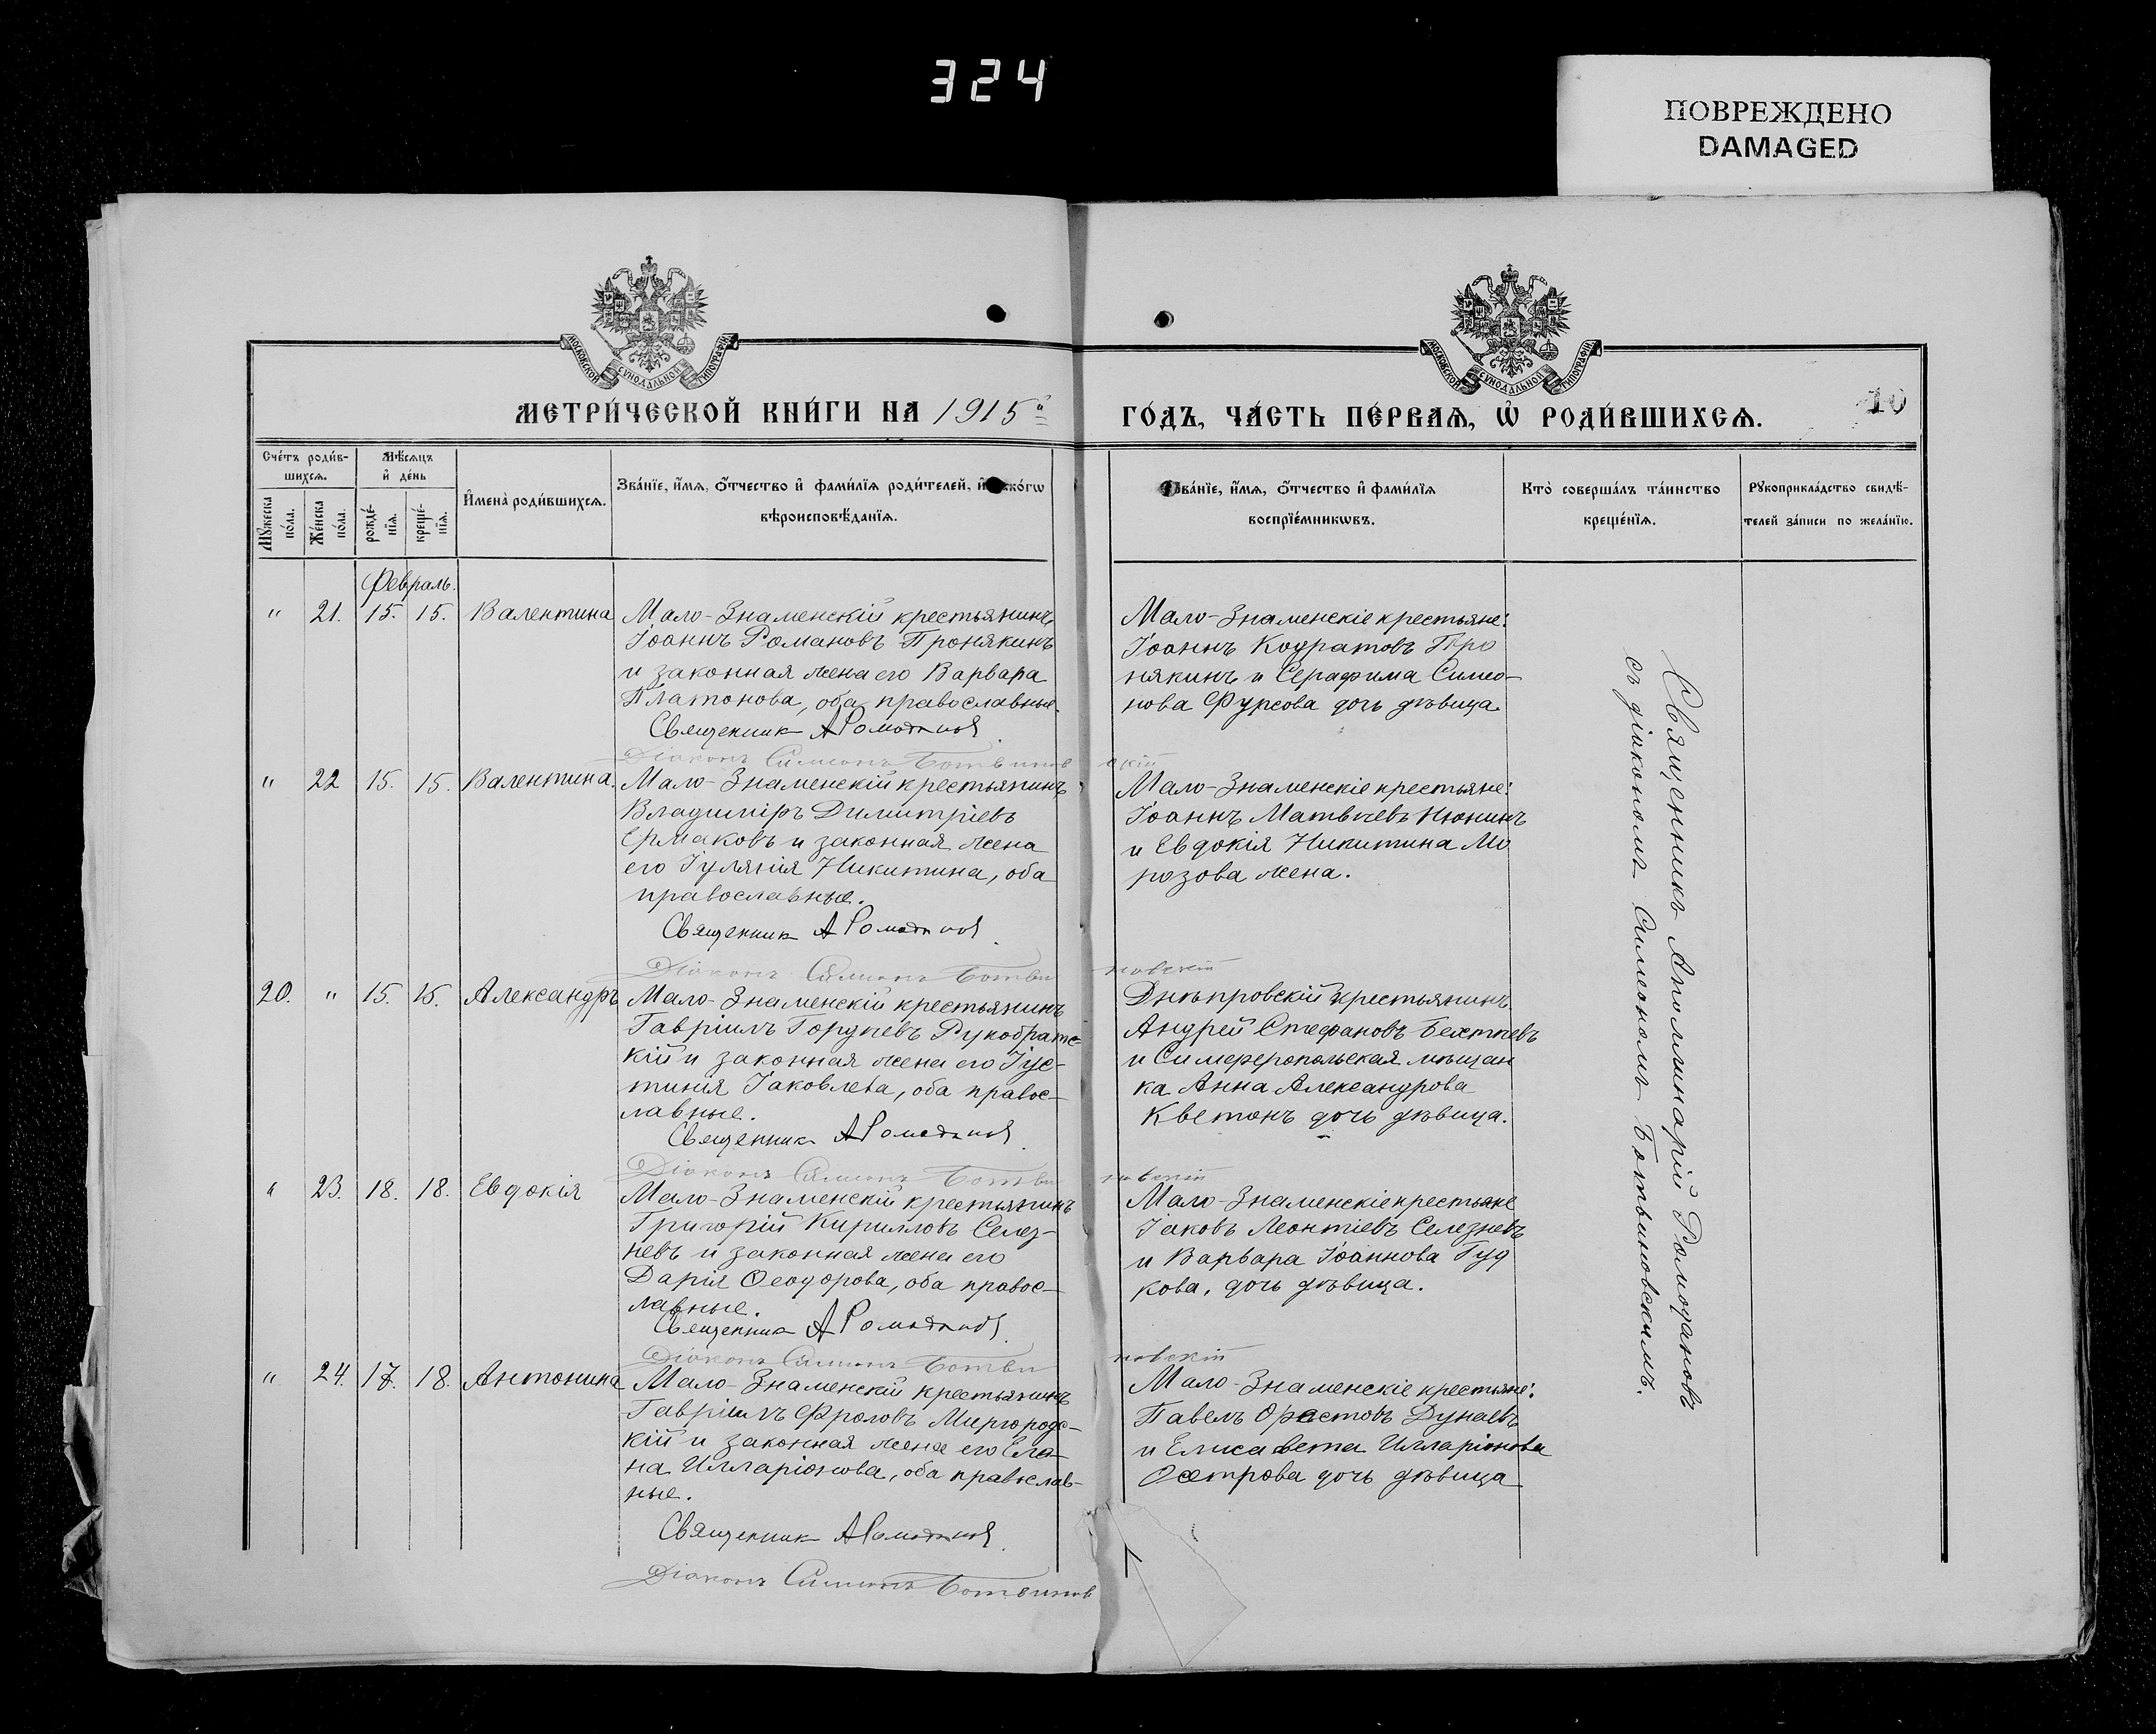 324
ПОВРЕЖДЕНО
DAMAGED
МОСКОВСКОЙ СѴНОДАЛЬНОЙ ТИПОГРАФІИ
МОСКОВСКОЙ СѴНОДАЛЬНОЙ ТИПОГРАФІИ
МЕТРИ́ЧЕСКОЙ КНИ́ГИ НА 1915й
ГО́ДЪ, ЧА́СТЬ ПЕ́РВАѦ, Ѡ҆ РОДИ́ВШИХСѦ.
10
Сче́тъ роди́в-
шихсѧ.
Мꙋ́жеска
по́ла.
Же́нска
по́ла.
Мѣ́сѧцъ
и҆ де́нь
рожде́-
нїѧ.
креще́-
нїѧ.
И҆мена̀ роди́вшихсѧ.
Зва́нїе, и҆́мѧ, ѻ҆́тчество и҆ фами́лїѧ роди́телей, и҆ ко́гѡ
вѣроисповѣ́данїѧ.
Зва́нїе, и҆́мѧ, ѻ҆́тчество и҆ фами́лїѧ
воспрїе́мникѡвъ.
Кто̀ соверша́лъ та́инство
креще́нїѧ.
Рꙋкоприкла́дство свидѣ́-
телей за́писи по жела́нїю.
Февраль.
" 21. 15. 15. Валентина
Мало-Знаменскій крестьянинъ
Іоаннъ Романовъ Пронякинъ
и законная жена его Варвара
Платонова, оба православные.
Священник АРомоданов
Діаконъ Симеонъ Ботвинов
скій
Мало-Знаменскіе крестьяне:
Іоаннъ Кодратовъ Про
някинъ и Серафима Симео-
нова Фурсова дочь дѣвица.
" 22 15. 15. Валентина.
Мало-Знаменскій крестьянинъ
Владиміръ Димитріевъ
Ермаковъ и законная жена
его Іулянія Никитина, оба
православные.
Священник АРомоданов
Діаконъ Симеонъ Ботви
новскій
Мало-Знаменскіе крестьяне:
Іоаннъ Матвѣевъ Нюнинъ
и Евдокія Никитина Мо
розова жена.
20. " 15. 15. Александръ
Мало-Знаменскій крестьянинъ
Гавріилъ Гордѣевъ Рукобратс-
кій и законная жена его Іус-
тинія Іаковлева, оба правос-
лавные.
Священник АРомоданов
Діаконъ Симеонъ Ботви
новскій
Днѣпровскій крестьянинъ
Андрей Стефановъ Бехтѣевъ
и Симферопольская мѣщан
ка Анна Александрова
Кветонъ дочь дѣвица.
" 23. 18. 18. Евдокія
Мало-Знаменскій крестьянинъ
Григорій Кирилловъ Селез-
невъ и законная жена его
Дарія Ѳеодорова, оба правос-
лавные.
Священник АРомоданов
Діаконъ Симеонъ Ботви
новскій
Мало-Знаменскіе крестьяне
Іаковъ Леонтіевъ Селезневъ
и Варвара Іоаннова Гуд
кова, дочь дѣвица.
" 24. 17. 18. Антонина
Мало-Знаменскій крестьянинъ
Гавріилъ Фроловъ Миргородс-
кій и законная жена его Еле-
на Илларіонова, оба православ-
ные.
Священник АРомоданов
Діаконъ Симеонъ Ботвинов
Мало-Знаменскіе крестьяне:
Павелъ Орестовъ Дунаевъ
и Елисавета Илларіонова
Осетрова дочь дѣвица
Священникъ Аполлинарій Ромодановъ
съ діакономъ Симеономъ Ботвиновскимъ.